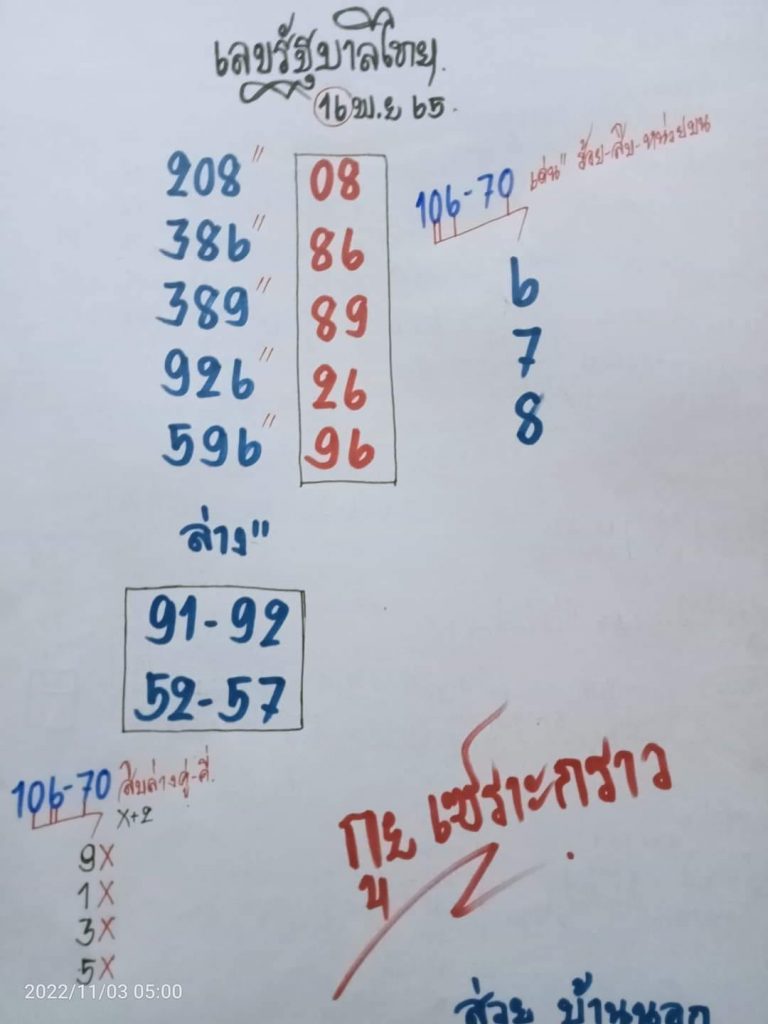 เลขรัฐบาลไทย.
16 พ.ย 65.
208" 08
386" 86
389" 89
926" 26
596" 96
106-70 เด่น" ร้อย-สิบ-หน่วยบน
6
7
8
ล่าง"
91-92
52-57
106-70 สิบล่างคู่-คี่.
x+2
9x
1x
3x
5x
กูย เซราะกราว
ส่วย บ้านนอก
2022/11/03 05:00